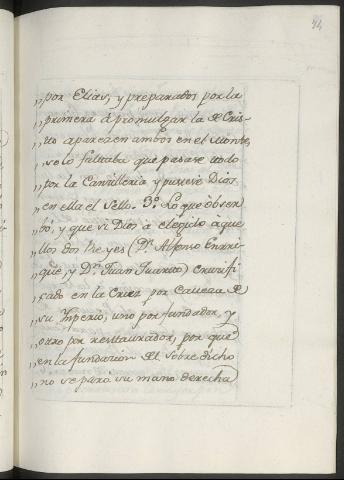 74
„por Elias, y preparados por la
„primera á promulgar la de Cris-
„to aparezen ambos en el monte,
„solo faltaba que pasase todo
„por la Canzilleria y pusiese Dios
„en ella el Sello. 3º. Lo que obser
„bó, y que si Dios á elegido á que
„llos dos Reyes (Dn. Alfonso Enrri-
„que, y Dn. Juan Quarto) cruzifi
„cado en la Cruz por Caveza de
„su Ymperio, uno por fundador, y
„otro por restaurador, por que
„en la fundazion del sobre dicho
„no separó su mano derecha